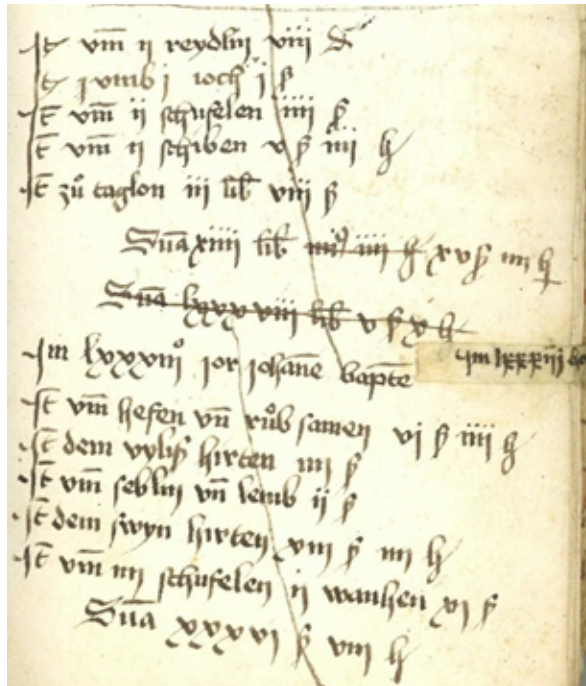 It vm̄ ii reydlin viii ₰
It vmb i ioch i ß
It vm̄ ii schufelen iiii ß
It vm̄ ii schiben v ß iiii h
It zů taglon iii lib viii ß
Sūa xiiii lib iiii h xv ß iiii h
Sūa lxxxviii lib v ß x h
Im lxxxiiiº ior iohāne bapte
im lxxxiiii
It vm̄ hefen vn̄ růb samen vi ß iiii h
It dem hirten iiii ß
It vm̄ vn̄ lemb ii ß
It dem swyn hirten viii ß iiii h
It vm̄ iiii schufelen ii wanhen xi ß
Sūa xxxvi ß viii h